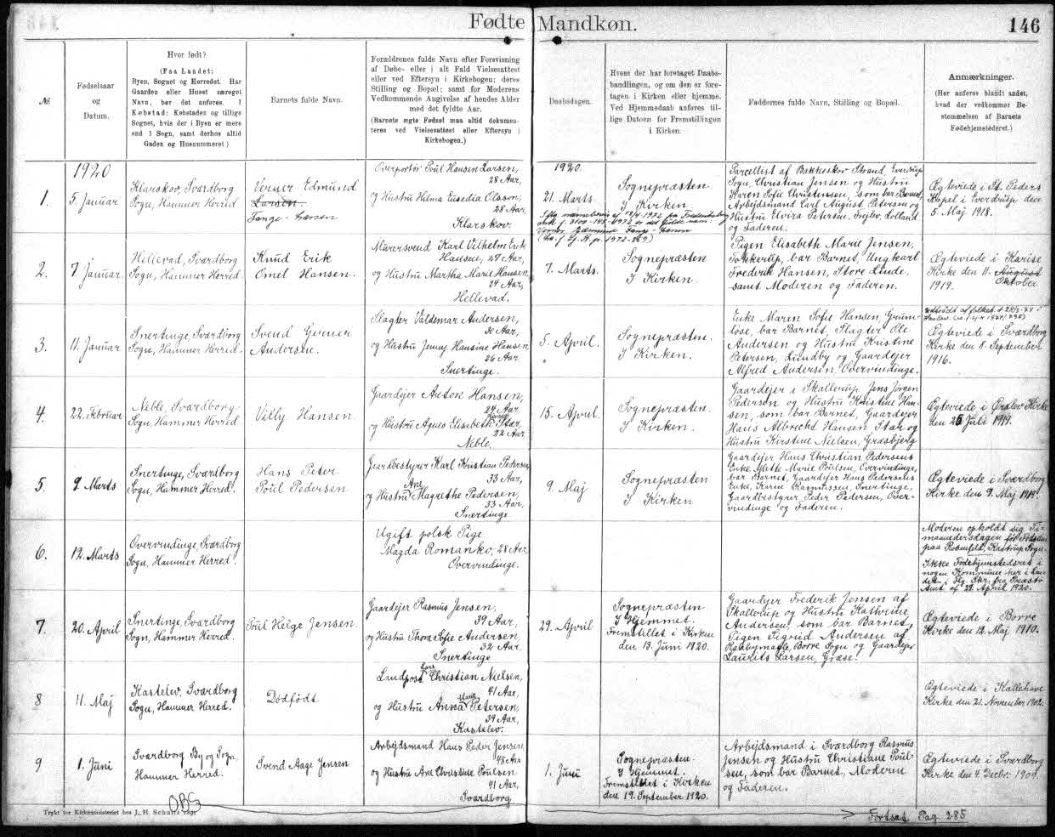 Fødte Mandkøn.
146
№
Fødselsaar
og
Datum.
Hvor født?
(Paa Landet:
Byen, Sognet og Herredet. Har
Gaarden eller Huset særeget
Navn, bør det anføres. I
Købstad: Købstaden og tillige
Sognet, hvis der i Byen er mere
end 1 Sogn, samt derhos altid
Gaden og Husnummeret)
Barnets fulde Navn.
Forældrenes fulde Navn efter Forevisning
af Døbe- eller i alt Fald Vielsesattest
eller ved Eftersyn i Kirkebogen; deres
Stilling og Bopæl; samt for Moderens
Vedkommende Angivelse af hendes Alder
med det fyldte Aar.
(Barnets ægte Fødsel maa altid dokumen-
teres ved Vielsesattest eller Eftersyn i
Kirkebogen.)
Daabsdagen.
Hvem der har foretaget Daabs-
handlingen, og om den er fore-
taget i Kirken eller hjemme.
Ved Hjemmedaab anføres til-
lige Datoen for Fremstillingen
i Kirken
Faddernes fulde Navn, Stilling og Bopæl.
Anmærkninger.
(Her anføres blandt andet,
hvad der vedkommer Be-
stemmelsen af Barnets
Fødehjemstederet.)
1920
1.
5 Januar
Klarskov, Sværdborg
Sogn, Hammer Herred
Verner Edmund
Larsen
Tange-Larsen
Overportør Poul Hansen Larsen,
28 Aar,
og Hustru Hilma Eusedia Olsson,
28 Aar
Klarskov.
1920.
21. Marts.
Sognepræsten
I Kirken.
Parcellist af Bækkeskov Strand, Everdrup
Sogn, Christian Jensen og Hustru
Karen Sofie Christensen, som bar Barnet,
Arbejdsmand Carl August Petersen og
Hustru Elvira Petersine, Lolland
og Faderen.
Ægteviede i St. Peders
Kapel i Everdrup den
5. Maj 1918.
2.
7 Januar
Hellevad, Sværdborg
Sogn, Hammer Herred
Knud Erik
Omel Hansen.
Murersvend Karl Vilhelm Erik
Hansen, 27 Aar,
og Hustru Martha Marie Hansen
24 Aar,
Hellevad.
7. Marts.
Sognepræsten
I Kirken.
Pigen Elisabeth Marie Jensen,
bar Barnet, Ungkarl
Frederik Hansen, Store Linde,
samt Moderen og Faderen.
Ægteviede i Karise
Kirke den 11. August
Oktober
1919.
3.
11. Januar
Snertinge, Sværdborg
Sogn, Hammer Herred
Svend Gunner
Andersen.
Slagter Valdemar Andersen,
30 Aar
og Hustru Jenny Hansine Hansen
26 Aar
Snertinge.
5. April.
Sognepræsten.
I Kirken.
Enke Maren Sofie Hansen,
bar Barnet, Slagter Ole
Andersen og Hustru Kristine
Petersen, Lundby og Gaardejer
Alfred Andersen Overvindinge.
Ægteviede i Sværdborg
Kirke den 8. September
1916.
4
22. Februar
Neble, Sværdborg
Sogn, Hammer Herred
Villy Hansen
Gaardejer Anton Hansen,
24 Aar
og Hustru Agnes Elisabeth Stær
22 Aar
Neble.
15. April.
Sognepræsten.
I Kirken.
Gaardejer i Skallerup Jens Jørgen
Pedersen og Hustru Kristine Han-
sen, som bar Barnet, Gaardejer
Hans Albrecht Hansen Stær og
Hustru Kirstine Nielsen, Græsbjerg
Ægteviede i Ørslev Kirke
den 25 Juli 1919.
5
9. Marts
Snertinge, Sværdborg
Sogn, Hammer Herred.
Hans Peter
Poul Pedersen
Gaardbestyrer Karl Kristian Pedersen
33 Aar,
og Hustru Ane Magrethe Pedersen,
33 Aar.
Snertinge
9. Maj
Sognepræsten
I Kirken
Gaardejer Hans Christian Pedersens
Enke Mette Marie Poulsen, Overvindinge,
bar Barnet, Gaardejer Hans Pedersens
Enke, Karen Rasmussen, Snertinge,
Gaardbestyrer Peder Pedersen, Over-
vindinge og Faderen.
Ægteviede i Sværdborg
Kirke den 9. Maj
6.
12. Marts
Overvindinge, Sværdborg
Sogn, Hammer Herred.
Ugift polsk Pige
Magda Romanko, 28 Aar
Overvindinge.
Moderen opholdt sig Ti-
maanedersdagen før Fødselen
paa Rosenfeldt, Kastrup Sogn.
7.
20. April
Snertinge, Sværdborg
Sogn, Hammer Herred
Poul Helge Jensen
Gaardejer Rasmus Jensen.
39 Aar,
og Hustru Thora Sofie Andersen
32 Aar.
Snertinge
29. April
Sognepræsten
I Hjemmet.
Fremstillet i Kirken
den 13. Juni 1920.
Gaardejer Frederik Jensen af
Skallerup og Hustru Kathrine
Andersen, som bar Barnet,
Pigen Sigrid Andersen af
Borre Sogn og Gaardejer
Laurits Larsen,
Ægteviede i Borre
Kirke den 12. Maj 1910.
8
11. Maj
Kastelev, Sværdborg
Sogn, Hammer Herred.
Dødfødt
Landpost Lars Christian Nielsen,
41 Aar,
og Hustru Anna Marie Petersen,
39 Aar,
Kastelev.
Ægteviede i Kallehave
Kirke den 21. November 1902.
9
1. Juni
Sværdborg By og Sogn
Hammer Herred.
Svend Aage Jensen
Arbejdsmand Hans Peder Jensen,
48 Aar
og Hustru Ane Christine Poulsen
41 Aar,
Sværdborg
1. Juni
Sognepræsten.
I Hjemmet.
Fremstillet i Kirken
den 19. September 1920.
Arbejdsmand i Sværdborg Rasmus
Jensen og Hustru Christiane Poul-
sen, som bar Barnet, Moderen
og Faderen.
Ægteviede i Sværdborg
Kirke den 4. Decbr. 1904.
OBS
Trykt for Kirkeministeriet hos J. H. Schultz
Fortsat Pag. 285